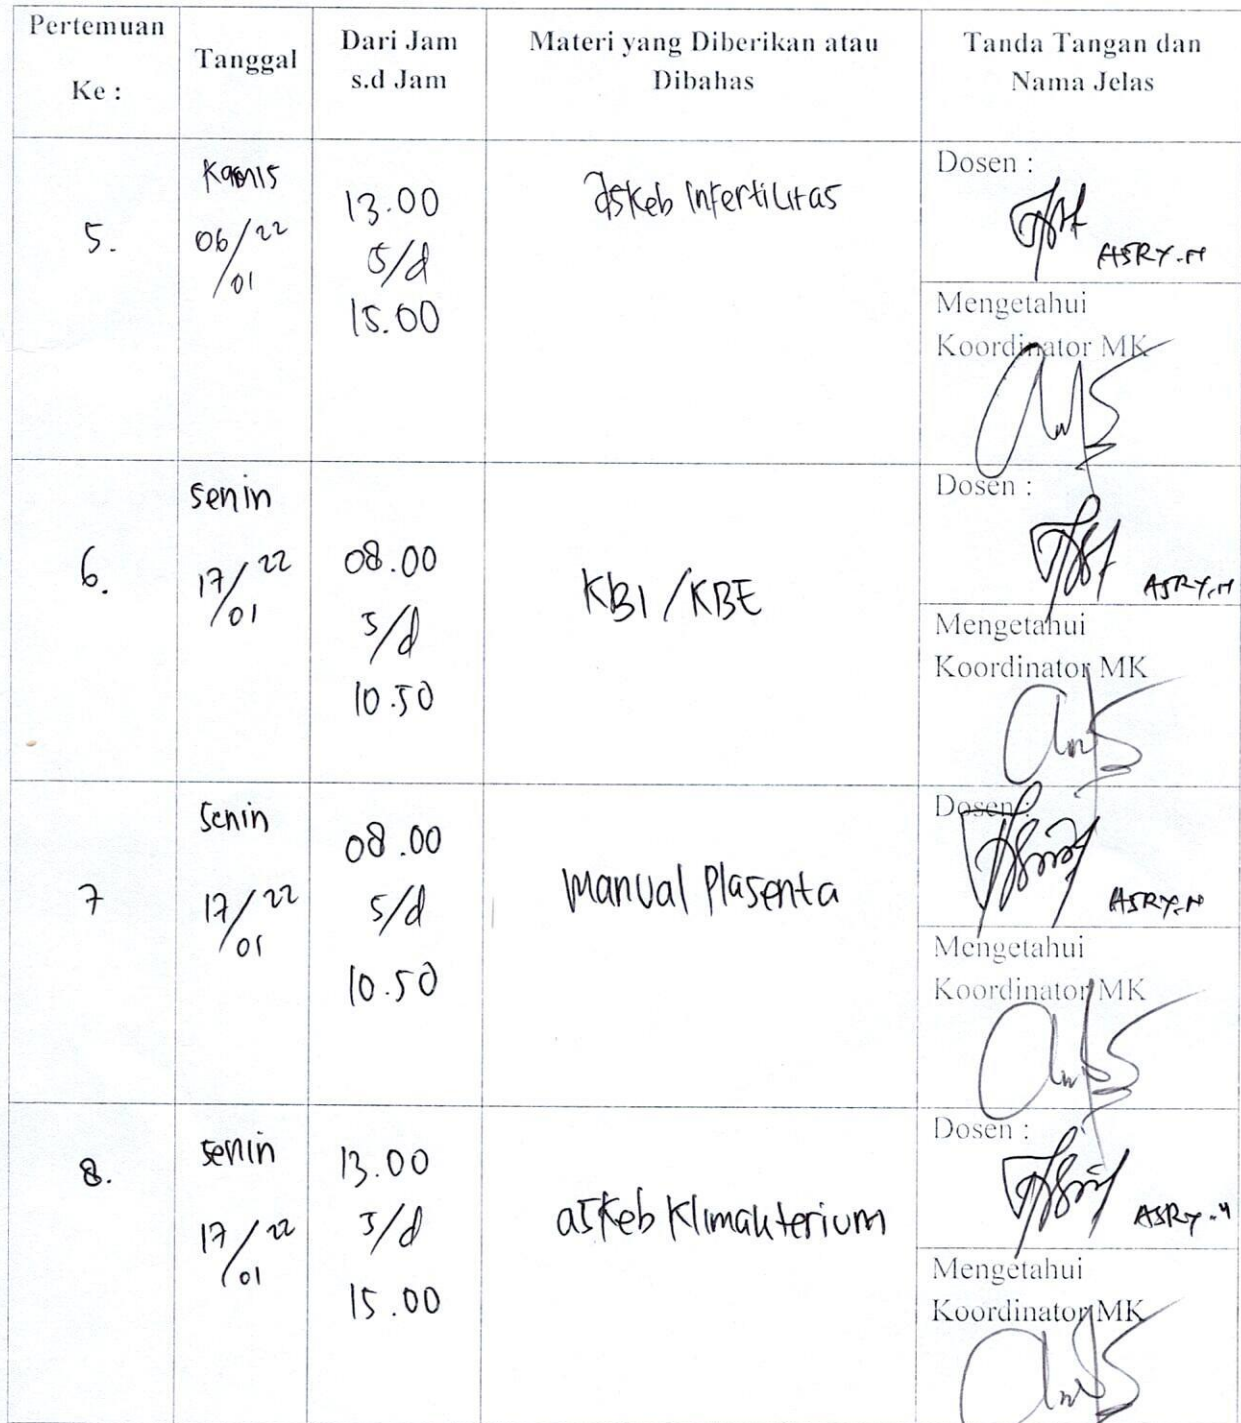 Pertemuan
Ke :
Tanggal
Dari Jam
s.d Jam
Materi yang Diberikan atau
Dibahas
Tanda Tangan dan
Nama Jelas
5.
Kamis
06/22
/01
13.00
s/d
15.00
askeb Infertilitas
Dosen :
ASRY.N
Mengetahui
Koordinator MK
6.
senin
17/22
/01
08.00
s/d
10.50
KBI / KBE
Dosen :
ASRY.N
Mengetahui
Koordinator MK
7
Senin
17/22
/01
08.00
s/d
10.50
Manual Plasenta
Dosen :
ASRY.N
Mengetahui
Koordinator MK
8.
senin
17/22
/01
13.00
s/d
15.00
askeb Klimakterium
Dosen :
ASRY.N
Mengetahui
Koordinator MK